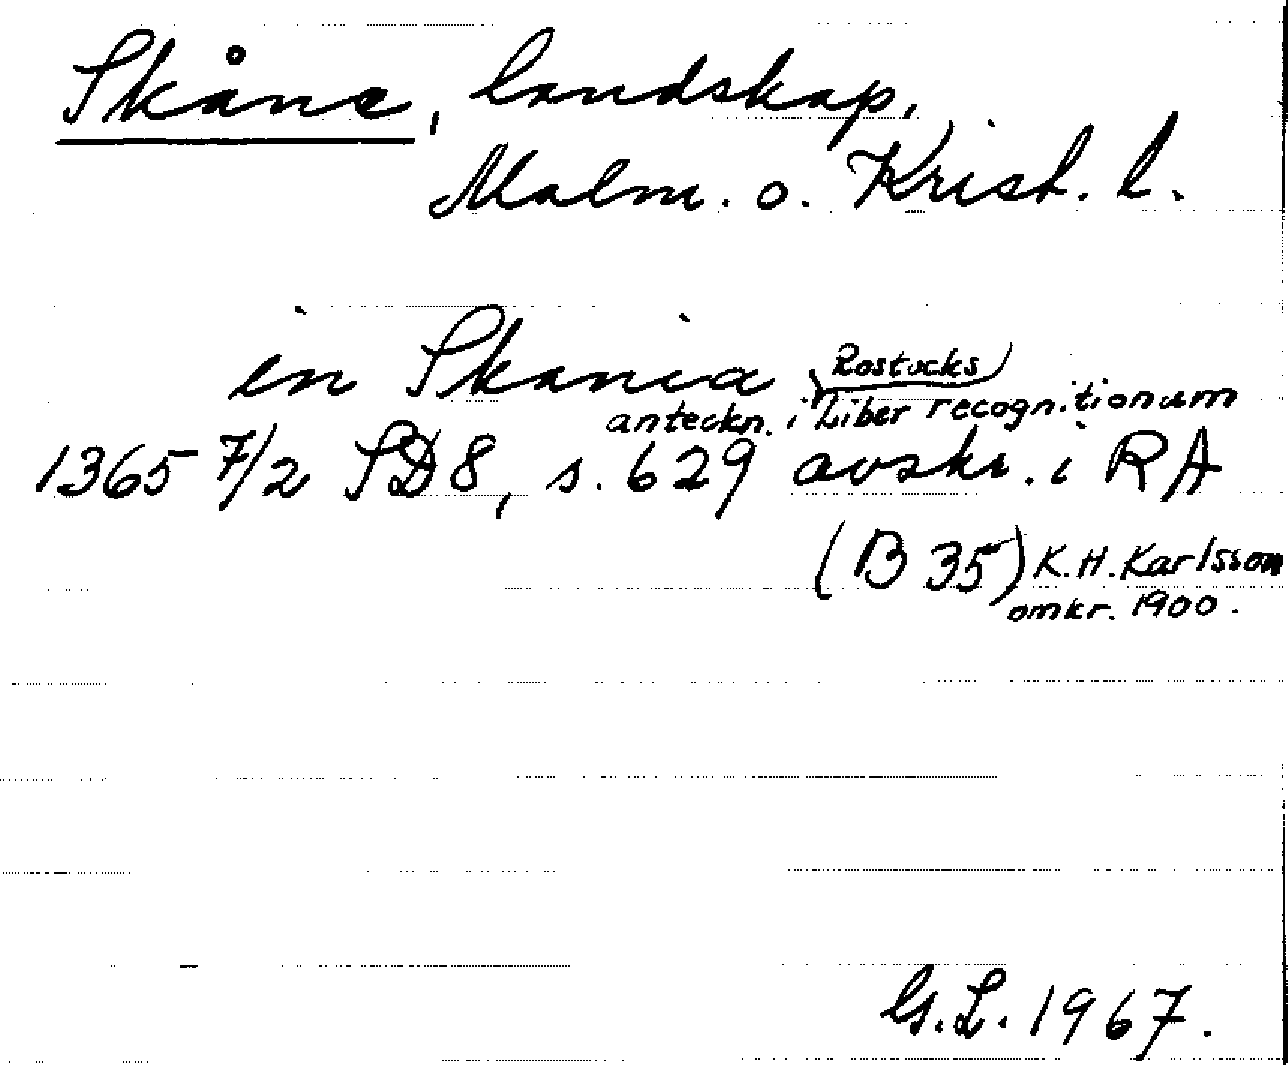 Skåne, landskap,
Malm. o. Krist. l.
in Skania
anteckn. i Rostocks Liber recognitionum
1365 7/2 SD 8, s. 629 avskr. i RA
(B 35) K.H. Karlsson
omkr. 1900.
G.L. 1967.